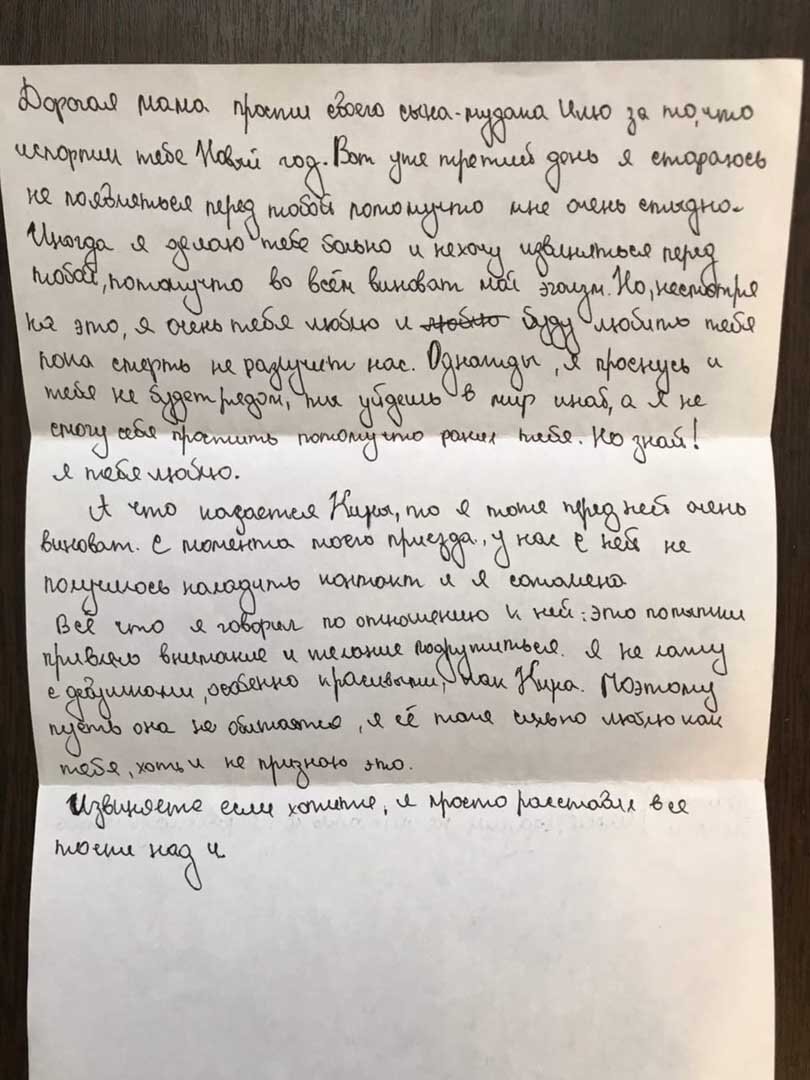 Дорогая мама прости своего сына-мудака Илю за то, что
испортил тебе Новый год. Вот уже третий день я стараюсь
не появляться перед тобой потомучто мне очень стыдно.
Иногда я делаю тебе больно и нехочу извиняться перед
тобой, потомучто во всём виноват мой эгоизм. Но, несмотря
на это, я очень тебя люблю и люблю буду любить тебя
пока смерть не разлучит нас. Однажды, я проснусь и
тебя не будет рядом, ты уйдешь в мир иной, а я не
смогу себя простить потомучто ранил тебя. Но знай!
я тебя люблю.
А что кадается Киры, то я тоже перед ней очень
виноват. С момента моего приезда, у нас с ней не
получилось наладить контакт и я
Всё что я говорил по отношению к ней: это попытки
привлечь внимание и желание подружиться. Я не лажу
с девушками, особенно красивыми, как Кира. Поэтому
пусть она не обижается, я её тоже сильно люблю как
тебя, хоть и не признаю это.
Извиняете если хотите, я просто расставил все
точки над и